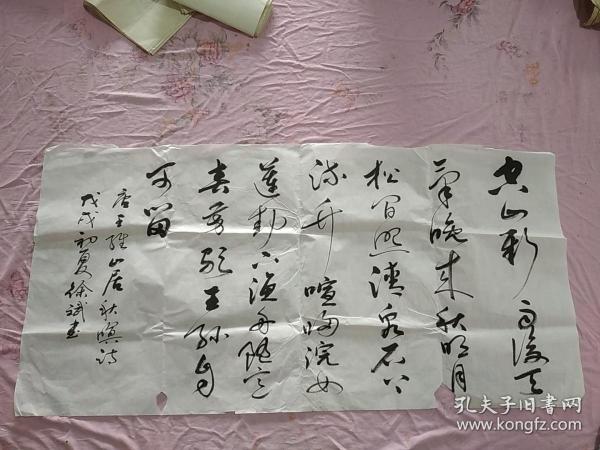 空山新雨後天
氣晚來秋明月
松間照清泉石上
流竹喧歸浣女
蓮動下漁舟隨意
春芳歇王孫自
可留
唐王維山居秋暝詩
戊戌初夏徐斌書
孔夫子旧书网
www.kongfz.com